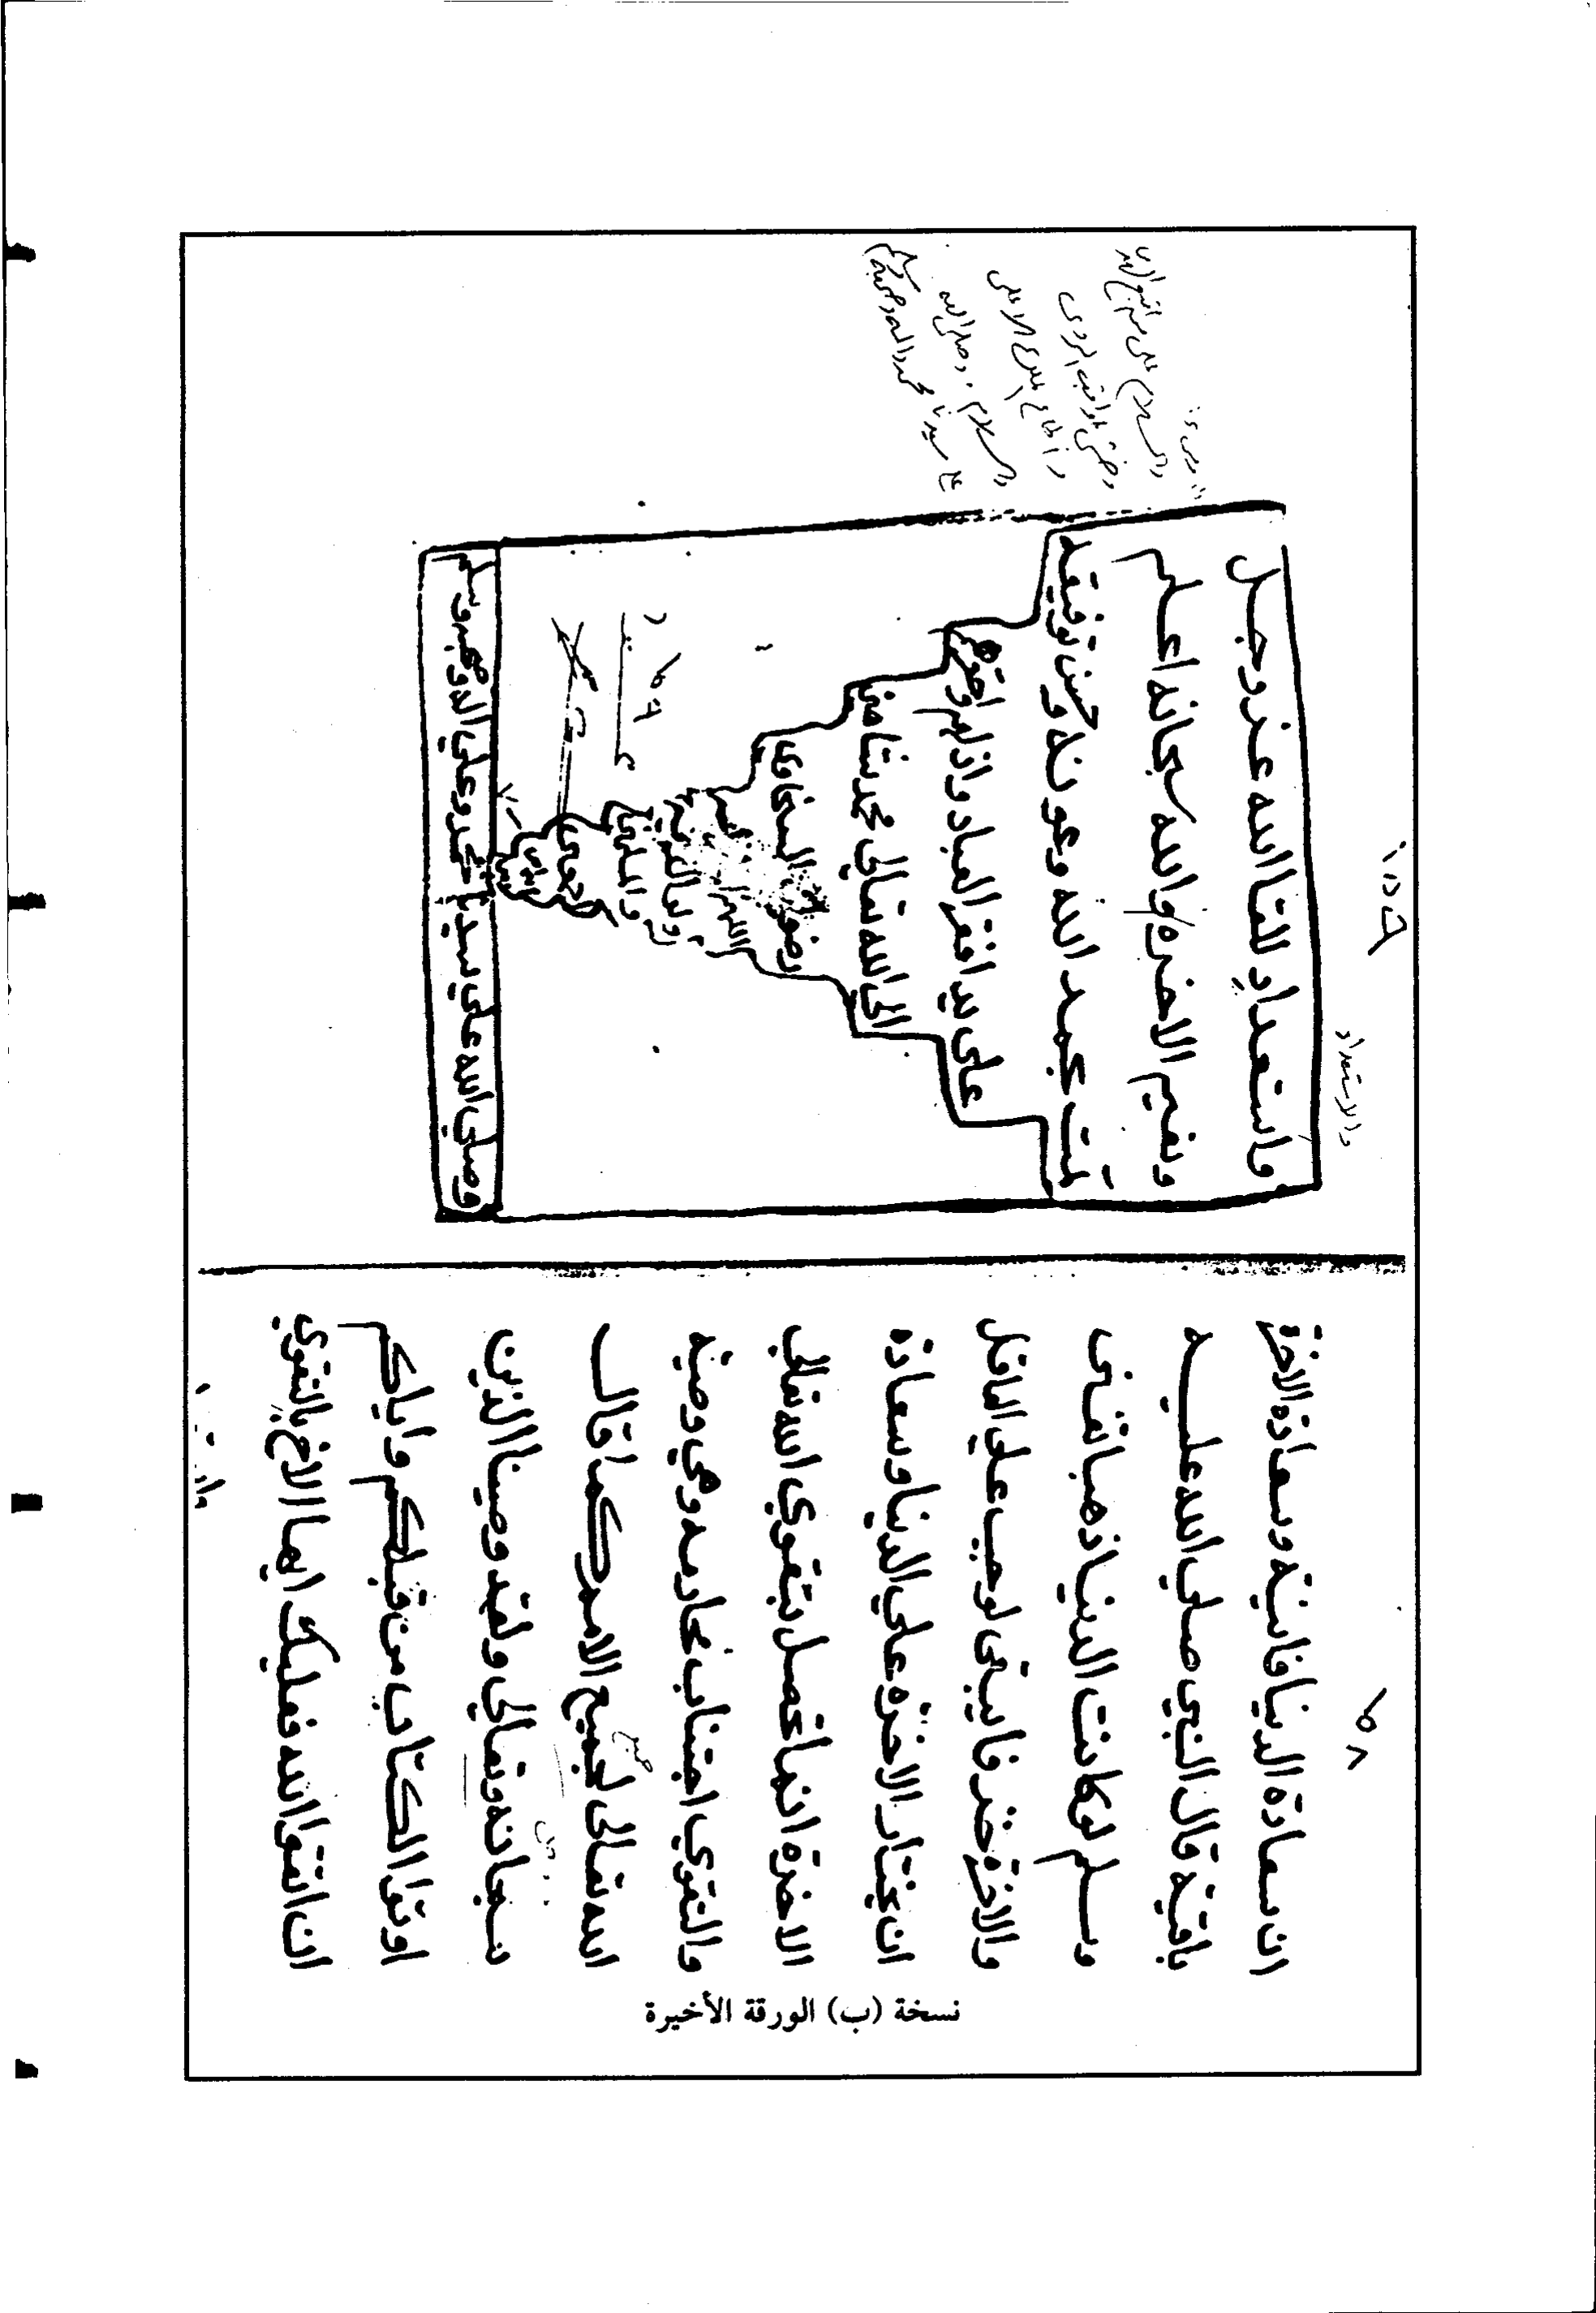 ان سعادة الدنيا فانية وسعادة الاخرة
باقية قال النبي صلي الله عليه
وسلم لو كانت الدنيا ذهبا تفنى
والاخرة خزفا يبقى لوجب علي العاقل
ان يختار الاخرة علي الدنيا وسعادة
الاخرة انما تحصل بتقوي الله تعالي
والتقوي اجتناب محارمه وهي وصية
الله تعالى لجميع الامم كما قال
سبحانه وتعالي ولقد وصينا الذين
اوتوا الكتاب من قبلكم واياكم
ان اتقوا الله فعليك ايها الاخ بالتقوي
واستعداد للقاا الله عز وجل
ونعيم الاخرة والله سبحانه اعلم
تمت بحمد الله وعونه وحسن توفيقه
على يد افقر العباد واذلهم واحوجهم
الى الله تعالى محمد شامي
السخاوى
وصلي الله علي سيدنا محمد وعلي اله وصحبه وسلم
والاستعداد
والسلام على من اتبع الهدى
وخشى عواقب الردى
واطاع الملك الاعلى
والسلام وصلى الله
على سيدنا محمد واله وصحبه وسلم
نسخة (ب) الورقة الأخيرة